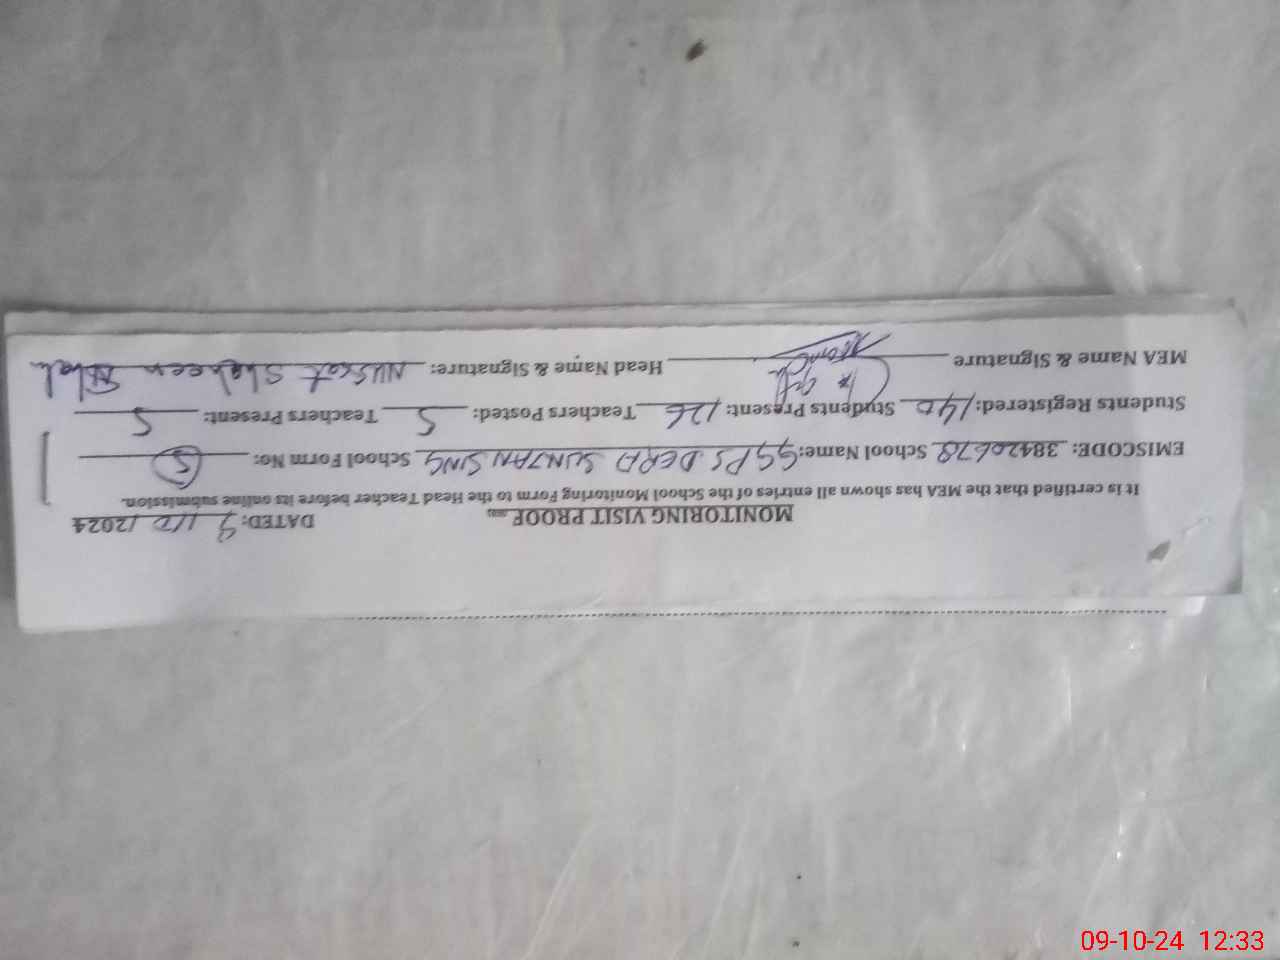 MONITORING VISIT PROOF DATED: 9 / 10 / 2024
It is certified that the MEA has shown all entries of the School Monitoring Form to the Head Teacher before its online submission.
EMISCODE: 38420678 School Name: GGPS DERA SUNJAN SING School Form No: 5
Students Registered: 140 Students Present: 126 Teachers Posted: 5 Teachers Present: 5
MEA Name & Signature Head Name & Signature: Nusrat Shaheen
09-10-24 12:33